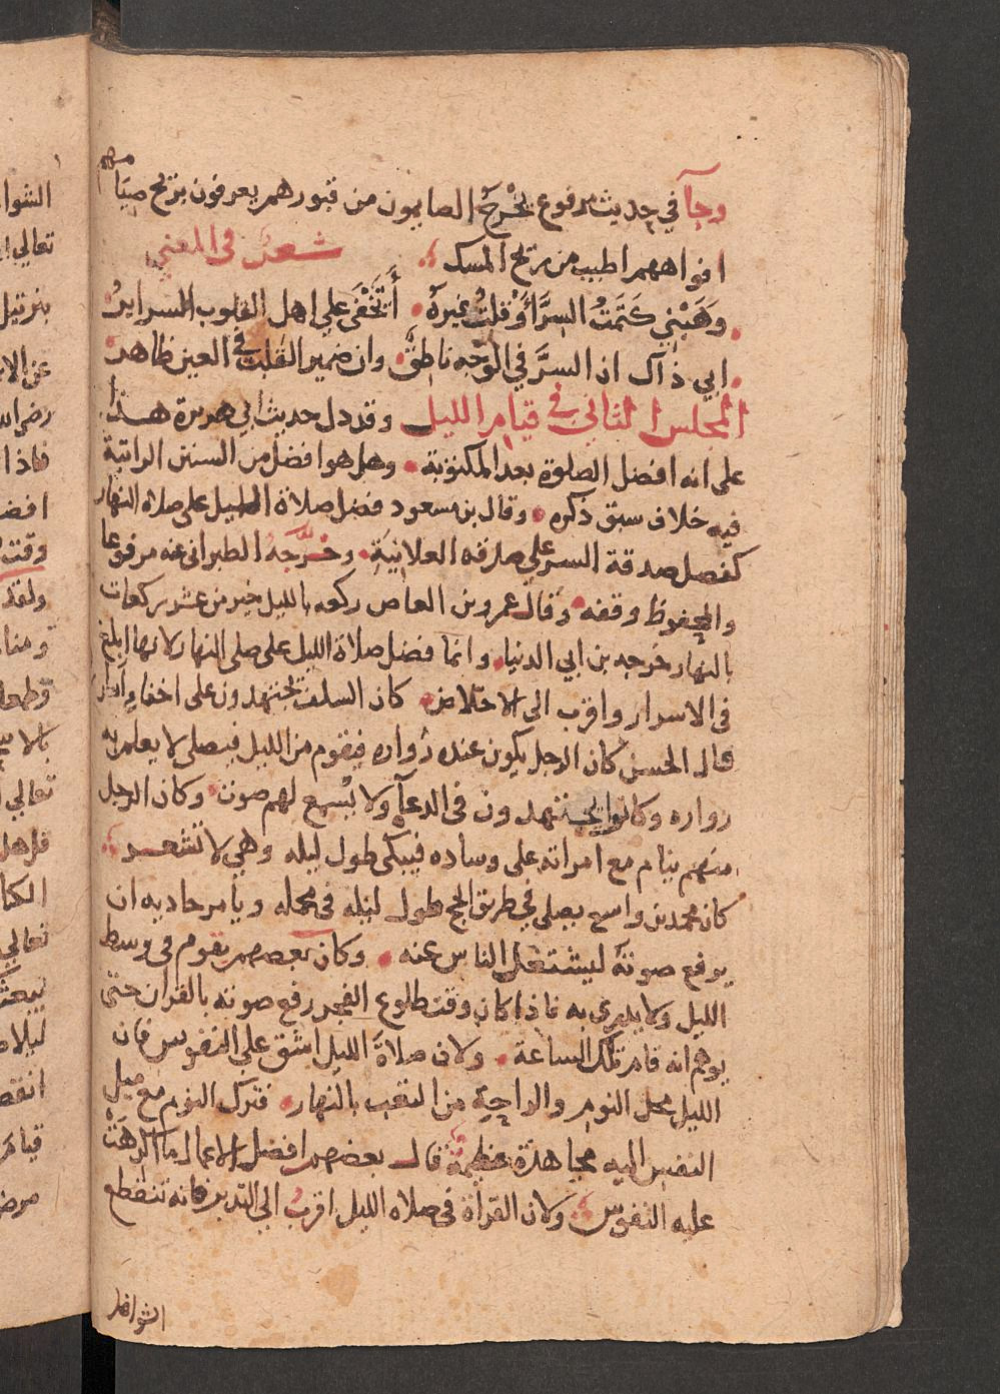 وجآ في حديث مرفوع يخرج الصايمون من قبورهم يعرفون بريح صيامهم
افواههم اطيب من ريح المسك شعر في المعنى
وهبني كتمت السر أو قلت غيره أتخفى على اهل القلوب السراير
ابي ذاك ان السر في الوجه ناطق وان ضمير القلب في العين ظاهر
المجلس الثاني في قيام الليل وقد دل حديث ابي هريرة هذا
على انه افضل الصلوة بعد المكتوبة وهل هو افضل من السنن الراتبة
فيه خلاف سبق ذكره وقال بن مسعود فضل صلاة الليل على صلاة النهار
كفضل صدقة السر على صدقه العلانية وخرجه الطبراني عنه مرفوعا
والمحفوظ وقفه وقال عمرو بن العاص ركعه بالليل خير من عشر ركعات
بالنهار خرجه بن ابي الدنيا وانما فضل صلاة الليل على صلى النهار لانها ابلغ
في الاسرار واقرب الى الاخلاص كان السلف يجتهدون على اخفاء
قال الحسن كان الرجل يكون عنده زواره فيقوم من الليل فيصلى لا يعلم به
زواره وكانوا يجتهدون في الدعآ ولا يسمع لهم صوت وكان الرجل
منهم ينام مع امراته على وساده فيبكى طول ليله وهي لا تشعر
كان محمد بن واسع يصلى في طريق الحج طول ليله في محمله ويامر حاديه ان
يرفع صوته ليشتغل الناس عنه وكان بعضهم يقوم في وسط
الليل ولا يدرى به فاذا كان وقت طلوع الفجر رفع صوته بالقران حتى
يوهم انه قام تلك الساعة ولان صلاة الليل اشق على النفوس فان
الليل محل النوم والراحة من التعب بالنهار فترك النوم مع ميل
النفس اليه مجاهدة عظيمة قال بعضهم افضل الاعمال ما اكرهت
عليه النفوس ولان القراة في صلاه الليل اقرب الى التدبر فانه تنقطع
الشواغل